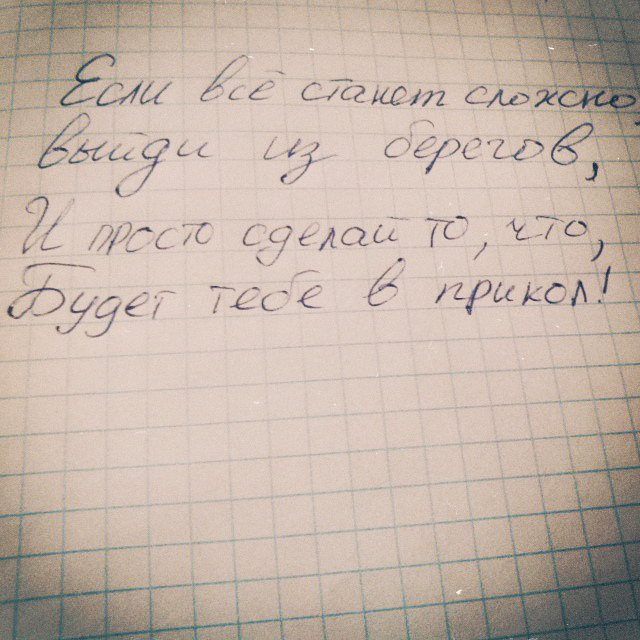 Если все станет сложно,
выйди из берегов,
И просто сделай то, что
Будет тебе в прикол!